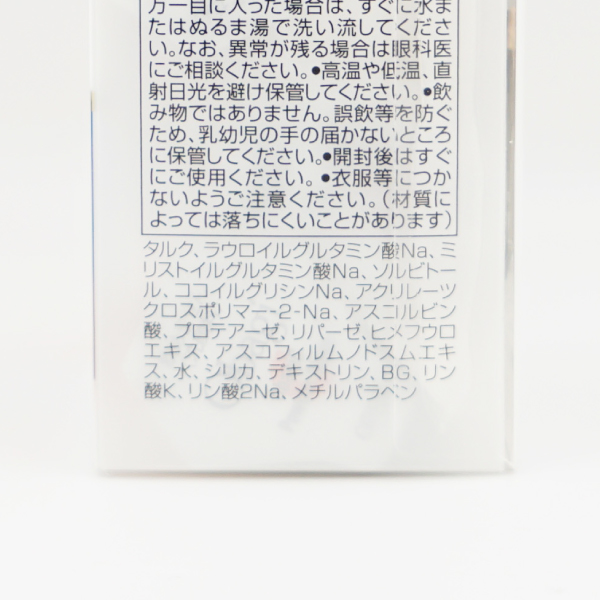 万一目に入った場合は、すぐに水ま
たはぬるま湯で洗い流してくださ
い。なお、異常が残る場合は眼科医
にご相談ください。●高温や低温、直
射日光を避け保管してください。●飲
み物ではありません。誤飲等を防ぐ
ため、乳幼児の手の届かないところ
に保管してください。●開封後はすぐ
にご使用ください。●衣服等につか
ないようご注意ください。(材質に
よっては落ちにくいことがあります)
タルク、ラウロイルグルタミン酸Na、ミ
リストイルグルタミン酸Na、ソルビトー
ル、ココイルグリシンNa、アクリレーツ
クロスポリマー-2-Na、アスコルビン
酸、プロテアーゼ、リパーゼ、ヒメフウロ
エキス、アスコフィルムノドスムエキ
ス、水、シリカ、デキストリン、BG、リン
酸K、リン酸2Na、メチルパラベン